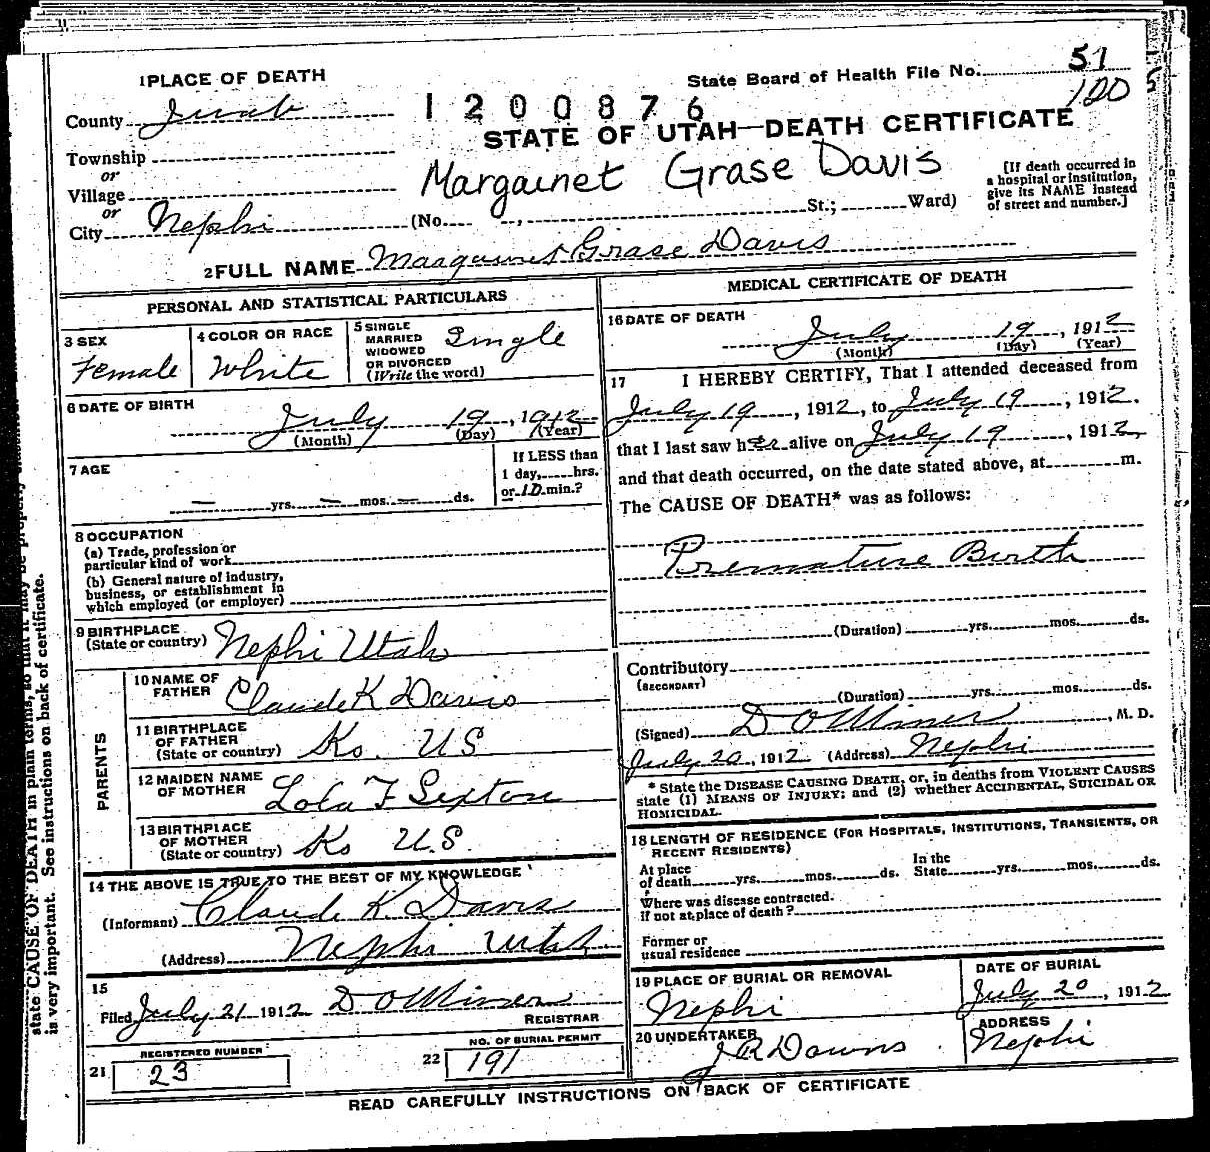 1 PLACE OF DEATH
State Board of Health File No. 51
120
County Juab
1200876
STATE OF UTAH—DEATH CERTIFICATE
Township
or
Village
or
City Nephi
Margainet Grase Davis
(No. , St.; Ward)
[If death occurred in
a hospital or institution,
give its NAME instead
of street and number.]
2 FULL NAME Margainet Grase Davis
PERSONAL AND STATISTICAL PARTICULARS
3 SEX
Female
4 COLOR OR RACE
White
5 SINGLE
MARRIED
WIDOWED
OR DIVORCED
(Write the word)
Single
6 DATE OF BIRTH
July 19, 1912
(Month) (Day) (Year)
7 AGE
— yrs. — mos. — ds.
If LESS than
1 day, hrs.
or 10 min.?
8 OCCUPATION
(a) Trade, profession or
particular kind of work
(b) General nature of industry,
business, or establishment in
which employed (or employer)
9 BIRTHPLACE
(State or country) Nephi Utah
PARENTS
10 NAME OF
FATHER Claude K Davis
11 BIRTHPLACE
OF FATHER
(State or country) Ks. U S
12 MAIDEN NAME
OF MOTHER Lola F Sexton
13 BIRTHPLACE
OF MOTHER
(State or country) Ks U.S.
14 THE ABOVE IS TRUE TO THE BEST OF MY KNOWLEDGE
(Informant) Claude K. Davis
(Address) Nephi Utah
15
Filed July 21 1912 D O Miner
REGISTRAR
21 REGISTERED NUMBER
23
22 NO. OF BURIAL PERMIT
191
MEDICAL CERTIFICATE OF DEATH
16 DATE OF DEATH
July 19, 1912
(Month) (Day) (Year)
17 I HEREBY CERTIFY, That I attended deceased from
July 19, 1912, to July 19, 1912.
that I last saw her alive on July 19, 1912,
and that death occurred, on the date stated above, at m.
The CAUSE OF DEATH* was as follows:
Premature Birth
(Duration) yrs. mos. ds.
Contributory
(SECONDARY)
(Duration) yrs. mos. ds.
(Signed) D O Miner, M. D.
July 20, 1912 (Address) Nephi
* State the DISEASE CAUSING DEATH, or, in deaths from VIOLENT CAUSES
state (1) MEANS OF INJURY; and (2) whether ACCIDENTAL, SUICIDAL OR
HOMICIDAL.
18 LENGTH OF RESIDENCE (FOR HOSPITALS, INSTITUTIONS, TRANSIENTS, OR
RECENT RESIDENTS)
At place
of death yrs. mos. ds.
In the
State yrs. mos. ds.
Where was disease contracted.
if not at place of death?
Former or
usual residence
19 PLACE OF BURIAL OR REMOVAL
Nephi
DATE OF BURIAL
July 20, 1912
20 UNDERTAKER
J R Downs
ADDRESS
Nephi
READ CAREFULLY INSTRUCTIONS ON BACK OF CERTIFICATE
state CAUSE OF DEATH in plain terms, so that it may be properly
is very important. See instructions on back of certificate.